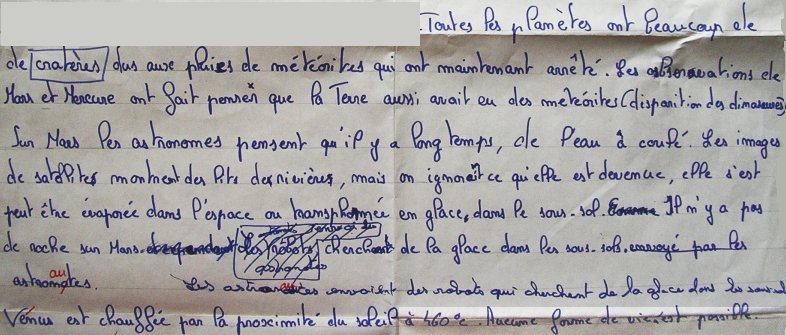 Toutes les planètes ont beaucoup de
de cratères dus aux pluies de météorites qui ont maintenant arrêté. Les observations de
Mars et Mercure ont fait penser que la Terre aussi avait eu des météorites (disparition des dinosaures)
Sur Mars les astronomes pensent qu'il y a longtemps, de l'eau à coulé. Les images
de satellites montrent des lits des rivières, mais on ignorait ce qu'elle est devenue, elle s'est
peut être évaporée dans l'espace ou transphormée en glace, dans le sous-sol. Il n'y a pas
de roche sur Mars des robots cherchent de la glace dans les sous-sols envoyé par les
astronautes.
Les astronautes envoient des robots qui cherchent de la glace dans les sous-sol
Vénus est chauffée par la proximité du soleil à 460°c. Aucune forme de vie n'est possible.